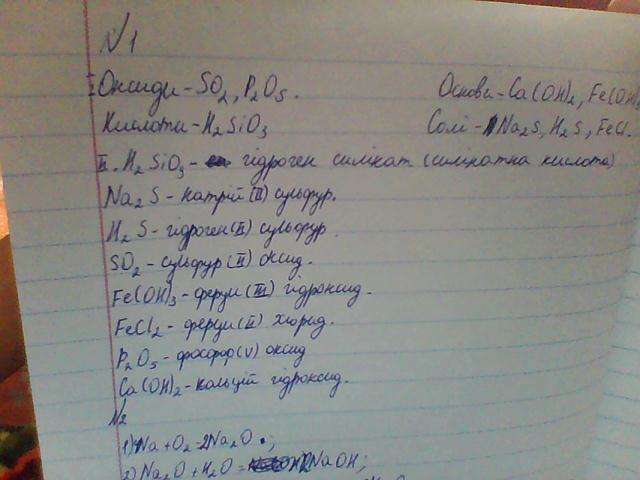 №1
I. Оксиди - SO2, P2O5. Основи - Ca(OH)2, Fe(OH)
Кислоти - H2SiO3 Солі - Na2S, H2S, FeCl
II. H2SiO3 - гідроген силікат (силікатна кислота)
Na2S - натрій (II) сульфур.
H2S - гідроген (II) сульфур
SO2 - сульфур (II) оксид.
Fe(OH)3 - ферум (III) гідроксид.
FeCl2 - ферум (II) хлорид.
P2O5 - фосфор (V) оксид
Ca(OH)2 - кальцій гідроксид.
№2
1) Na + O2 = 2Na2O;
2) Na2O + H2O = 2NaOH;